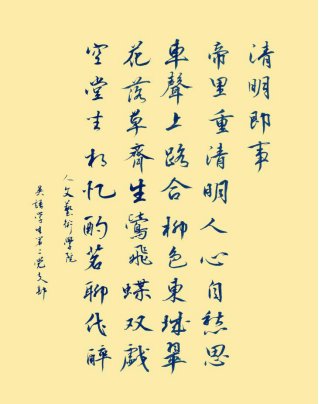 清明即事
帝里重清明人心自愁思
車聲上路合柳色東城翠
花落草齊生鶯飛蝶双戲
空堂坐相忆酌茗聊代醉
人文藝術學院
英語學生第二党支部